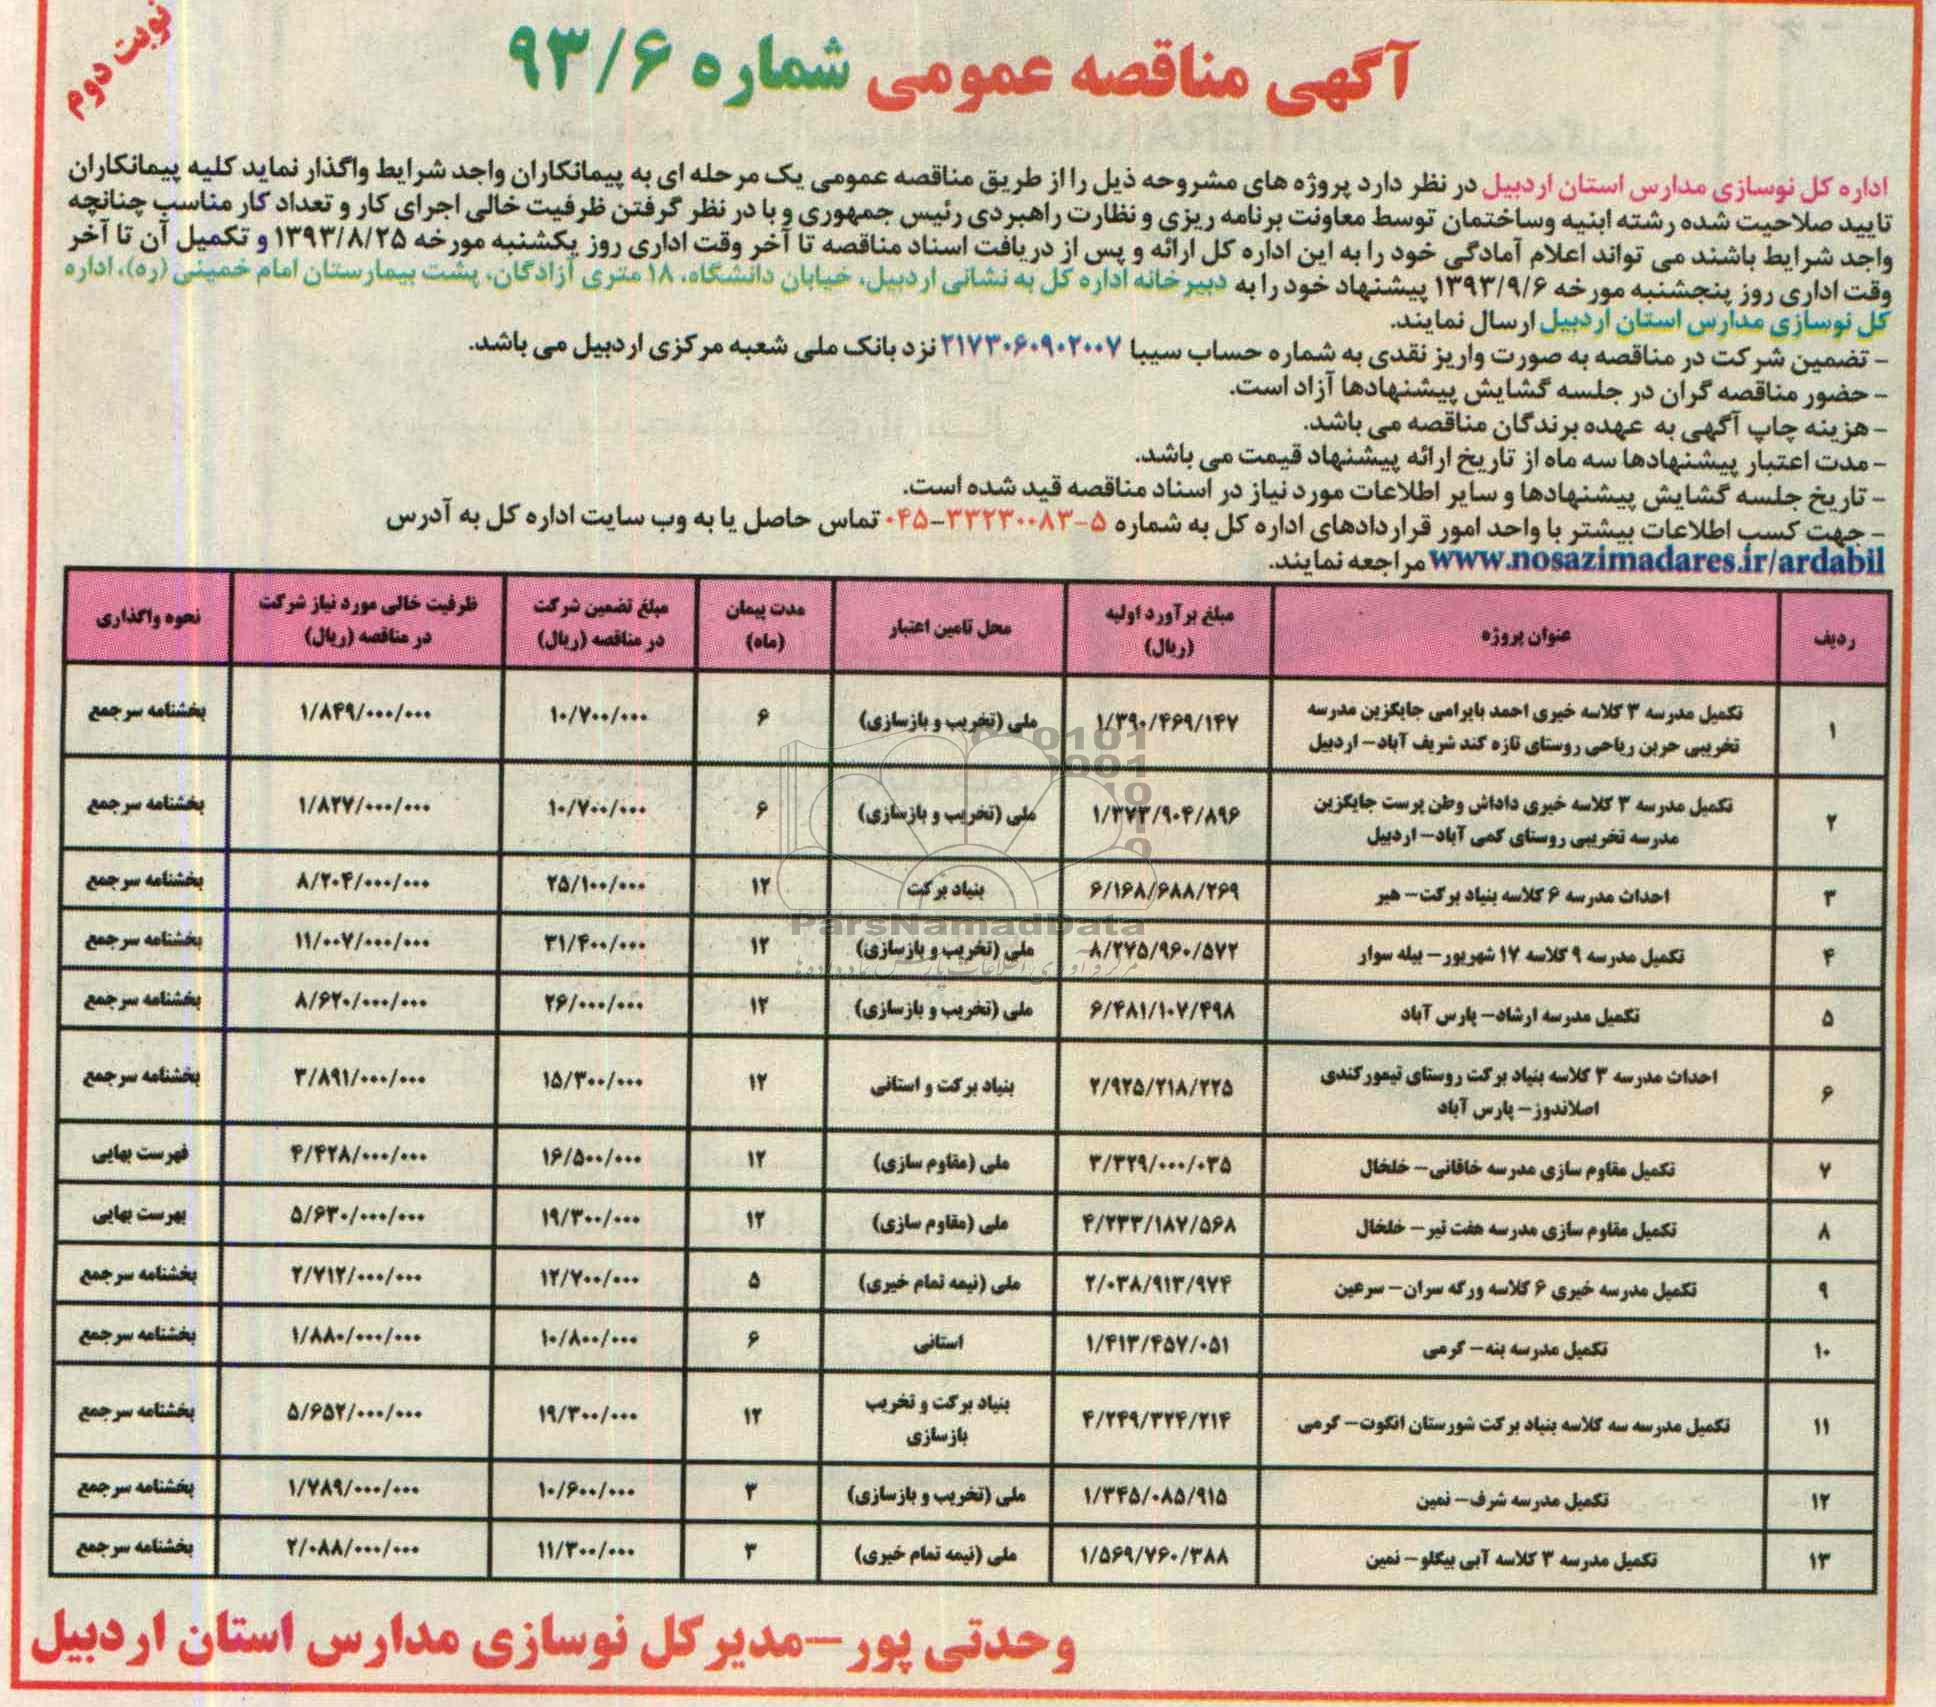 نوبت دوم
آگهی مناقصه عمومی شماره ۹۳/۶
اداره کل نوسازی مدارس استان اردبیل در نظر دارد پروژه های مشروحه ذیل را از طریق مناقصه عمومی یک مرحله ای به پیمانکاران واجد شرایط واگذار نماید کلیه پیمانکاران
تایید صلاحیت شده رشته ابنیه وساختمان توسط معاونت برنامه ریزی و نظارت راهبردی رئیس جمهوری و با در نظر گرفتن ظرفیت خالی اجرای کار و تعداد کار مناسب چنانچه
واجد شرایط باشند می تواند اعلام آمادگی خود را به این اداره کل ارائه و پس از دریافت اسناد مناقصه تا آخر وقت اداری روز یکشنبه مورخه ۱۳۹۳/۸/۲۵ و تکمیل آن تا آخر
وقت اداری روز پنجشنبه مورخه ۱۳۹۳/۹/۶ پیشنهاد خود را به دبیرخانه اداره کل به نشانی اردبیل، خیابان دانشگاه، ۱۸ متری آزادگان، پشت بیمارستان امام خمینی (ره)، اداره
کل نوسازی مدارس استان اردبیل ارسال نمایند.
- تضمین شرکت در مناقصه به صورت واریز نقدی به شماره حساب سیبا ۲۱۷۳۰۶۰۹۰۲۰۰۷ نزد بانک ملی شعبه مرکزی اردبیل می باشد.
- حضور مناقصه گران در جلسه گشایش پیشنهادها آزاد است.
- هزینه چاپ آگهی به عهده برندگان مناقصه می باشد.
- مدت اعتبار پیشنهادها سه ماه از تاریخ ارائه پیشنهاد قیمت می باشد.
- تاریخ جلسه گشایش پیشنهادها و سایر اطلاعات مورد نیاز در اسناد مناقصه قید شده است.
- جهت کسب اطلاعات بیشتر با واحد امور قراردادهای اداره کل به شماره ۵-۳۳۲۳۰۰۸۳-۰۴۵ تماس حاصل یا به وب سایت اداره کل به آدرس
www.nosazimadares.ir/ardabil مراجعه نمایند.
ردیف عنوان پروژه مبلغ برآورد اولیه (ریال) محل تامین اعتبار مدت پیمان (ماه) مبلغ تضمین شرکت در مناقصه (ریال) ظرفیت خالی مورد نیاز شرکت در مناقصه (ریال) نحوه واگذاری
۱ تکمیل مدرسه ۳ کلاسه خیری احمد بایرامی جایگزین مدرسه تخریبی حربن ریاحی روستای تازه کند شریف آباد- اردبیل ۱/۳۹۰/۴۶۹/۱۴۷ ملی (تخریب و بازسازی) ۶ ۱۰/۷۰۰/۰۰۰ ۱/۸۴۹/۰۰۰/۰۰۰ بخشنامه سرجمع
۲ تکمیل مدرسه ۳ کلاسه خیری داداش وطن پرست جایگزین مدرسه تخریبی روستای کمی آباد- اردبیل ۱/۳۷۳/۹۰۴/۸۹۶ ملی (تخریب و بازسازی) ۶ ۱۰/۷۰۰/۰۰۰ ۱/۸۲۷/۰۰۰/۰۰۰ بخشنامه سرجمع
۳ احداث مدرسه ۶ کلاسه بنیاد برکت- هیر ۶/۱۶۸/۶۸۸/۲۶۹ بنیاد برکت ۱۲ ۲۵/۱۰۰/۰۰۰ ۸/۲۰۴/۰۰۰/۰۰۰ بخشنامه سرجمع
۴ تکمیل مدرسه ۹ کلاسه ۱۷ شهریور- بیله سوار ۸/۲۷۵/۹۶۰/۵۷۲ ملی (تخریب و بازسازی) ۱۲ ۳۱/۴۰۰/۰۰۰ ۱۱/۰۰۷/۰۰۰/۰۰۰ بخشنامه سرجمع
۵ تکمیل مدرسه ارشاد- پارس آباد ۶/۴۸۱/۱۰۷/۴۹۸ ملی (تخریب و بازسازی) ۱۲ ۲۶/۰۰۰/۰۰۰ ۸/۶۲۰/۰۰۰/۰۰۰ بخشنامه سرجمع
۶ احداث مدرسه ۳ کلاسه بنیاد برکت روستای تیمورکندی اصلاندوز- پارس آباد ۲/۹۲۵/۲۱۸/۲۲۵ بنیاد برکت و استانی ۱۲ ۱۵/۳۰۰/۰۰۰ ۳/۸۹۱/۰۰۰/۰۰۰ بخشنامه سرجمع
۷ تکمیل مقاوم سازی مدرسه خاقانی- خلخال ۳/۳۲۹/۰۰۰/۰۳۵ ملی (مقاوم سازی) ۱۲ ۱۶/۵۰۰/۰۰۰ ۴/۴۲۸/۰۰۰/۰۰۰ فهرست بهایی
۸ تکمیل مقاوم سازی مدرسه هفت تیر- خلخال ۴/۲۳۳/۱۸۷/۵۶۸ ملی (مقاوم سازی) ۱۲ ۱۹/۳۰۰/۰۰۰ ۵/۶۳۰/۰۰۰/۰۰۰ بهرست بهایی
۹ تکمیل مدرسه خیری ۶ کلاسه ورگه سران- سرعین ۲/۰۳۸/۹۱۳/۹۷۴ ملی (نیمه تمام خیری) ۵ ۱۲/۷۰۰/۰۰۰ ۲/۷۱۲/۰۰۰/۰۰۰ بخشنامه سرجمع
۱۰ تکمیل مدرسه بنه- گرمی ۱/۴۱۳/۴۵۷/۰۵۱ استانی ۶ ۱۰/۸۰۰/۰۰۰ ۱/۸۸۰/۰۰۰/۰۰۰ بخشنامه سرجمع
۱۱ تکمیل مدرسه سه کلاسه بنیاد برکت شورستان انگوت- گرمی ۴/۲۴۹/۳۲۴/۲۱۴ بنیاد برکت و تخریب بازسازی ۱۲ ۱۹/۳۰۰/۰۰۰ ۵/۶۵۲/۰۰۰/۰۰۰ بخشنامه سرجمع
۱۲ تکمیل مدرسه شرف- نمین ۱/۳۴۵/۰۸۵/۹۱۵ ملی (تخریب و بازسازی) ۳ ۱۰/۶۰۰/۰۰۰ ۱/۷۸۹/۰۰۰/۰۰۰ بخشنامه سرجمع
۱۳ تکمیل مدرسه ۳ کلاسه آبی بیگلو- نمین ۱/۵۶۹/۷۶۰/۳۸۸ ملی (نیمه تمام خیری) ۳ ۱۱/۳۰۰/۰۰۰ ۲/۰۸۸/۰۰۰/۰۰۰ بخشنامه سرجمع
ParsNamadData
وحدتی پور-مدیرکل نوسازی مدارس استان اردبیل